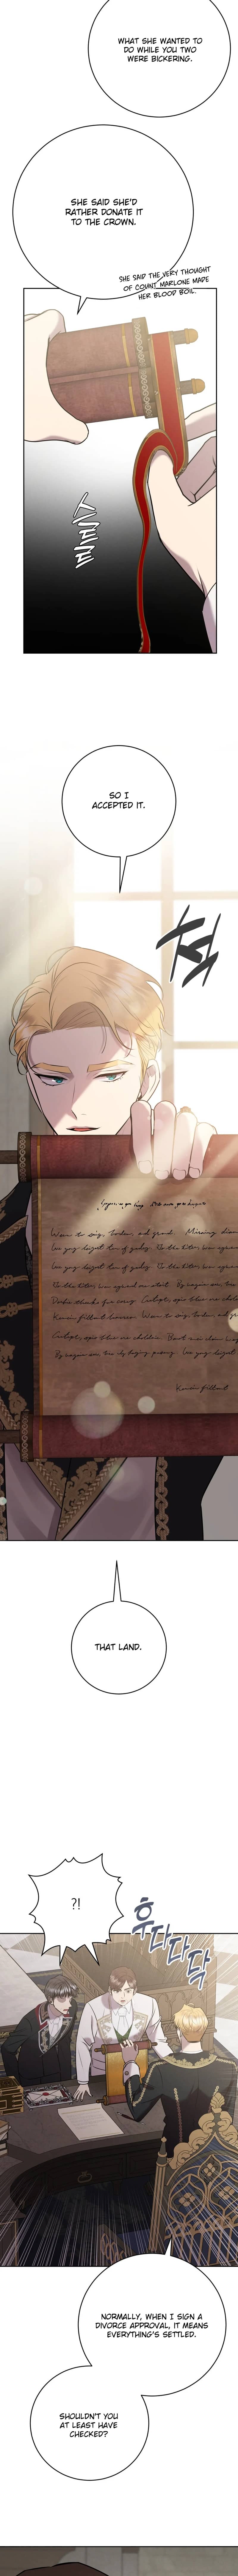 WHAT SHE WANTED TO
DO WHILE YOU TWO
WERE BICKERING.
SHE SAID SHE'D
RATHER DONATE IT
TO THE CROWN.
SHE SAID THE VERY THOUGHT
OF COUNT MARLONE MADE
HER BLOOD BOIL.
스르륵
SO I
ACCEPTED IT.
척
THAT LAND.
?!
후다다닥
NORMALLY, WHEN I SIGN A
DIVORCE APPROVAL, IT MEANS
EVERYTHING'S SETTLED.
SHOULDN'T YOU
AT LEAST HAVE
CHECKED?